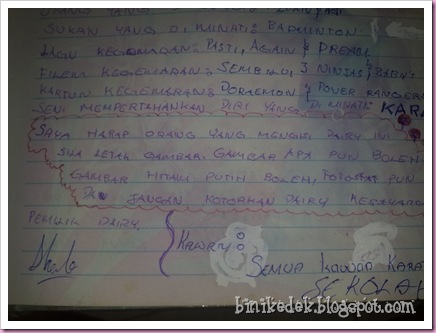 ORANG YANG
SUKAN YANG DI MINATI : BADMINTON
LAGU KEGEMARAN : PASTI, AGAIN &
FILEM KEGEMARAN : SEMBILU, 3 NINJAS & BABY'S
KARTUN KEGEMARAN : DORAEMON & POWER RANGERS
SENI MEMPERTAHANKAN DIRI YANG DI MINATI KARA
SAYA HARAP ORANG YANG MENGISI DAIRY INI
SILA LETAK GAMBAR. GAMBAR APA PUN BOLEH
GAMBAR HITAM PUTIH BOLEH, FOTOSTAT PUN
JANGAN KOTORKAN DAIRY KEGEMARAN
PEMILIK DAIRY,
KAWAN :
SEMUA KAWAN KARA
SEKOLAH
binikedek.blogspot.com